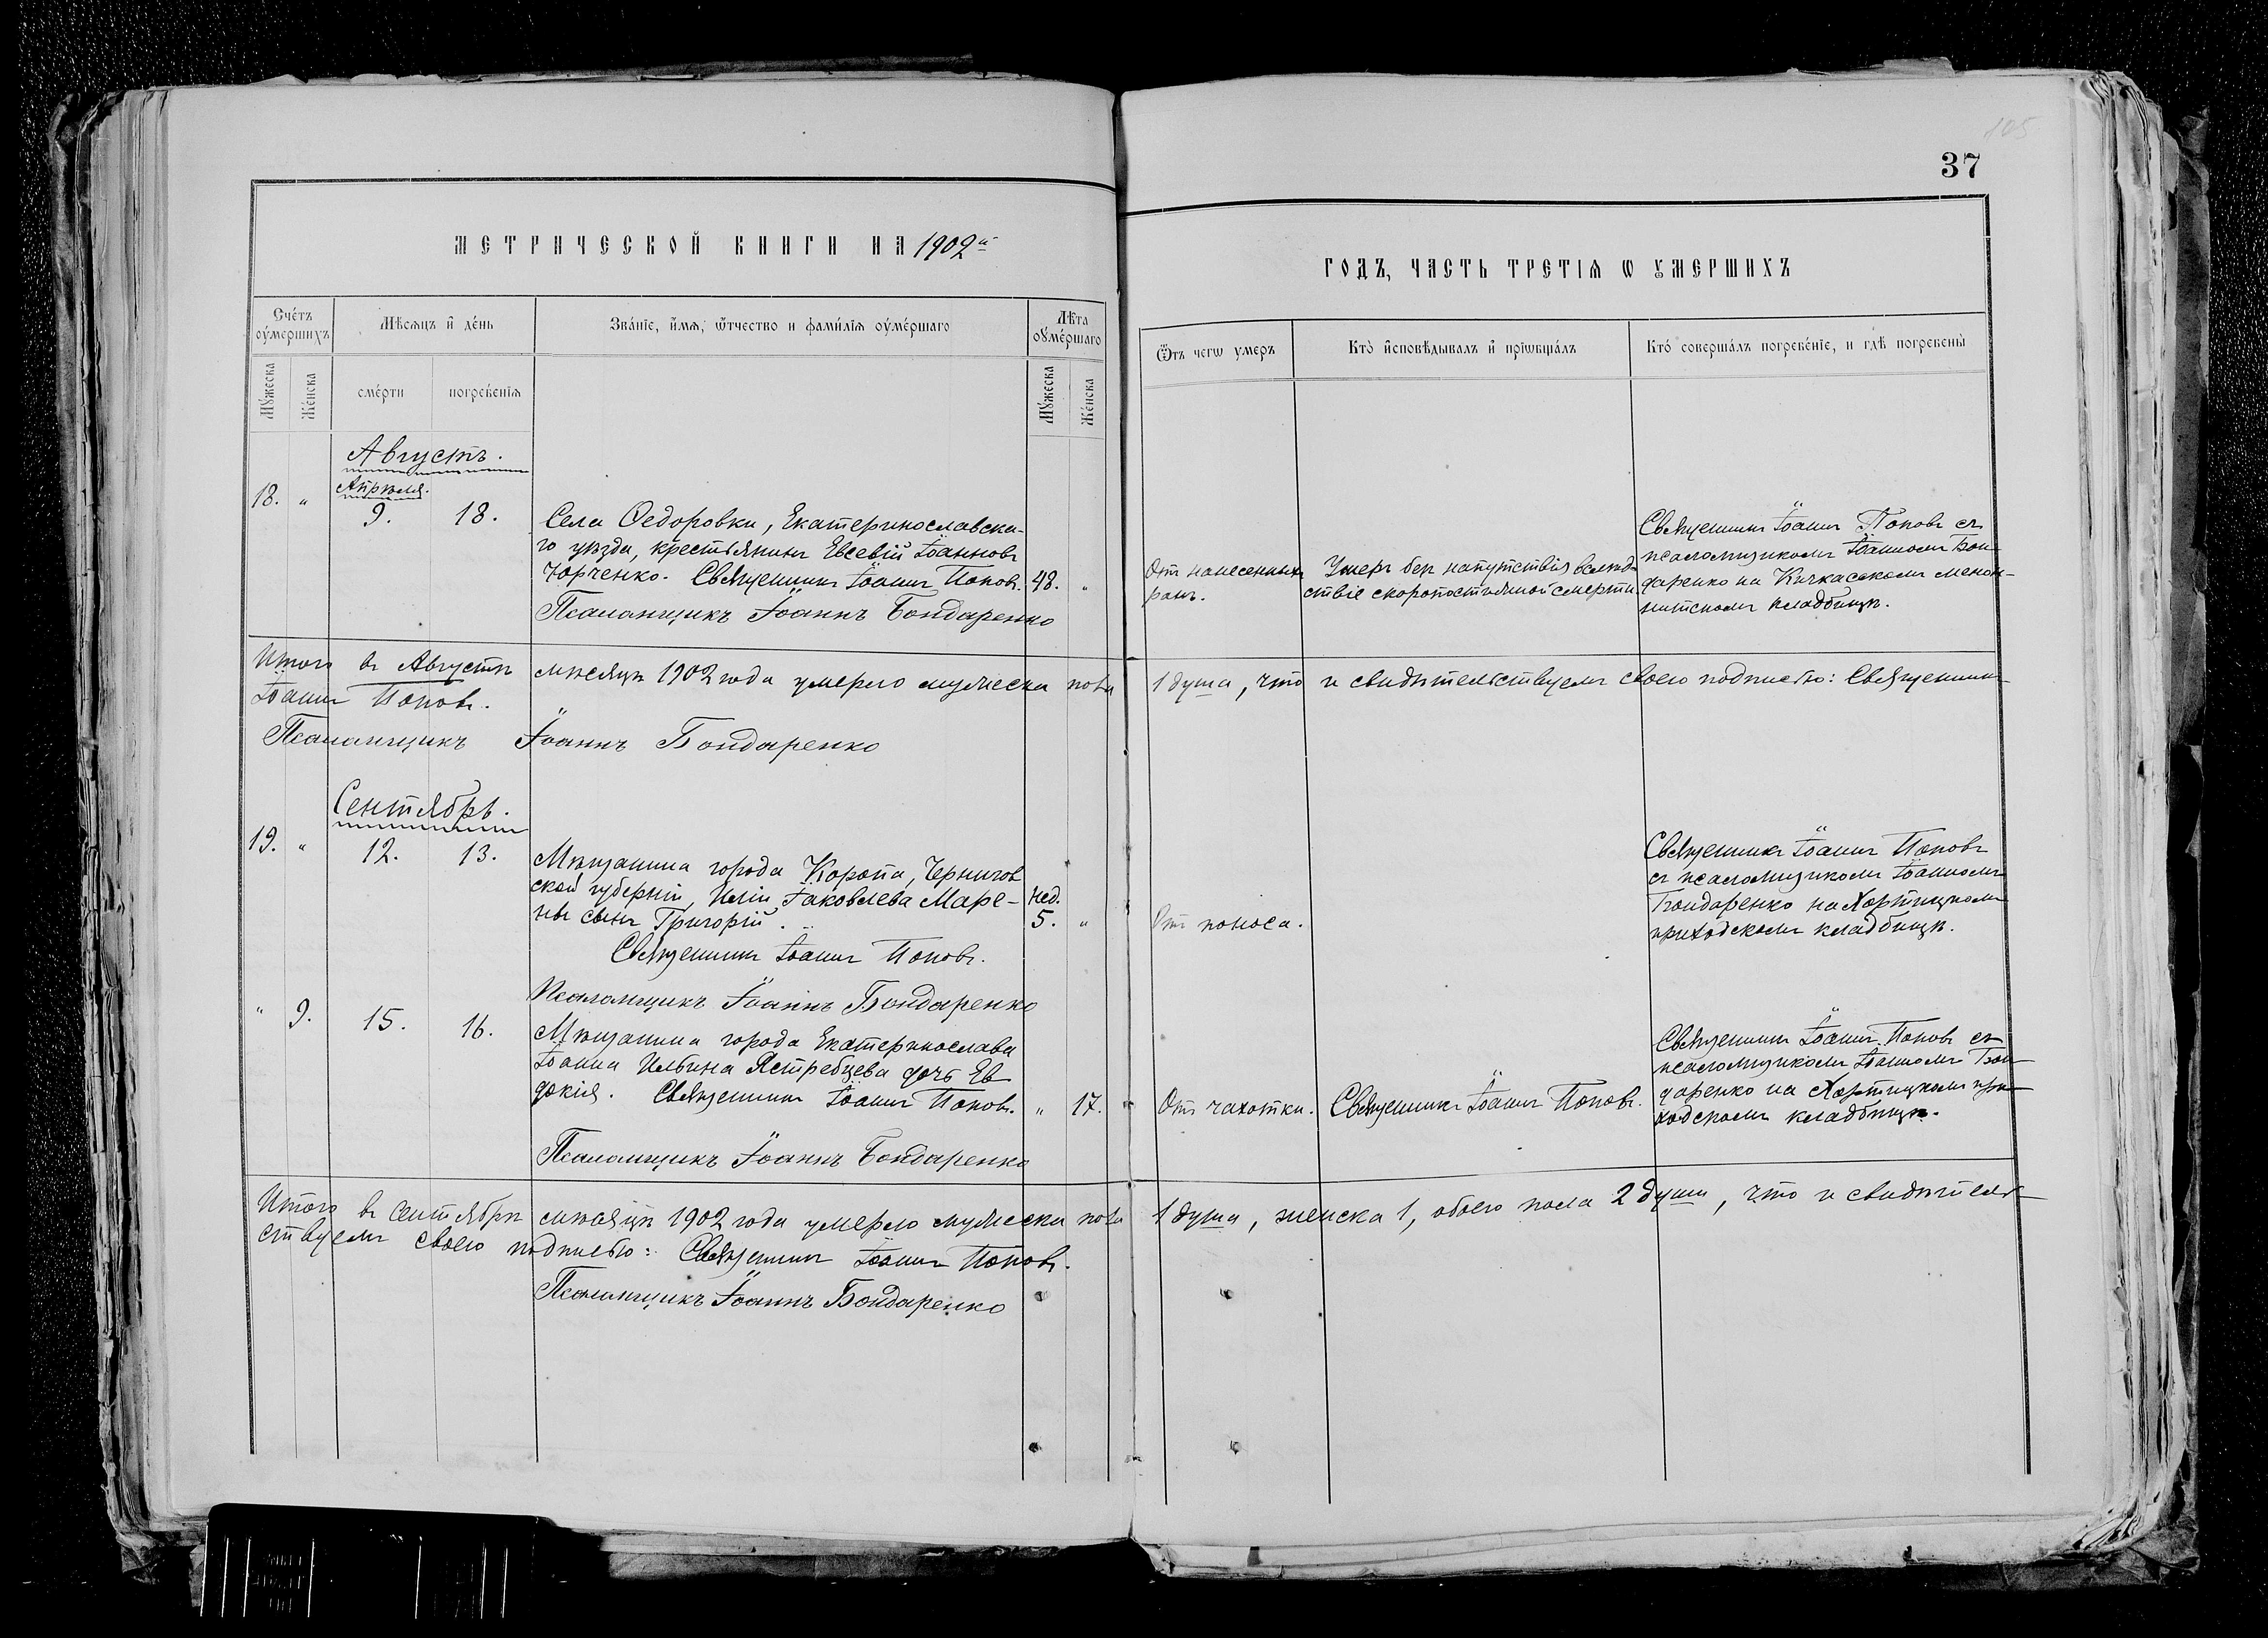 105
37
МЕТРИЧЕСКОЙ КНИГИ НА 1902й
ГОДЪ, ЧАСТЬ ТРЕТІѦ Ѡ ꙊМЕРШИХЪ
Сче́тъ оу́мершихъ
Мѣсяцъ и҆ де́нь
Зва́нїе, и҆́мѧ, ѿтчество и фами́лїѧ оуме́ршагѡ
Лѣ́та оуме́ршаго
Му́жеска
Же́нска
сме́рти
погребе́нїѧ
Му́жеска
Же́нска
Ѿтъ чегѡ умеръ
Кто̀ и҆сповѣ́дывалъ и҆ прїѡбща́лъ
Кто́ соверша́лъ погребе́нїе, и гдѣ̀ погребены̀
Августъ.
18. „
Апрѣля.
9. 18.
Села Ѳедоровки, Екатеринославска-
го уѣзда, крестьянинъ Евсевій Іоанновъ
Юрченко. Священникъ Іоаннъ Поповъ. 48. „
Псаломщикъ Іоаннъ Бондаренко
Отъ нанесенныхъ
ранъ.
Умеръ без напутствія вслѣд-
ствіе скоропостижной смерти.
Священникъ Іоаннъ Поповъ съ
псаломщикомъ Іоанномъ Бон-
даренко на Кичкаскомъ менон-
нитскомъ кладбищѣ.
Итого въ Августѣ мѣсяцѣ 1902 года умерло мужеска пола 1 душа, что и свидѣтельствуемъ своею подписью: Священникъ
Іоаннъ Поповъ.
Псаломщикъ Іоаннъ Бондаренко
Сентябрь.
19. „ 12. 13.
Мѣщанина города Коропа, Чернигов
ской губерніи, Иліи Іаковлева Маре-
ны сынъ Григорій.
нед.
5. „
Священникъ Іоаннъ Поповъ.
Псаломщикъ Іоаннъ Бондаренко
Отъ поноса.
Священникъ Іоаннъ Поповъ
съ псаломщикомъ Іоанномъ
Бондаренко на Хортицкомъ
приходскомъ кладбищѣ.
„ 9. 15. 16.
Мѣщанина города Екатеринослава
Іоанна Ильина Ястребцева дочь Ев
докія. Священникъ Іоаннъ Поповъ. „ 17.
Псаломщикъ Іоаннъ Бондаренко
Отъ чахотки.
Священникъ Іоаннъ Поповъ.
Священникъ Іоаннъ Поповъ съ
псаломщикомъ Іоанномъ Бон-
даренко на Хортицкомъ при-
ходскомъ кладбищѣ.
Итого въ Сентябрѣ мѣсяцѣ 1902 года умерло мужеска пола 1 душа, женска 1, обоего пола 2 души, что и свидѣтель-
ствуемъ своею подписью: Священникъ Іоаннъ Поповъ.
Псаломщикъ Іоаннъ Бондаренко